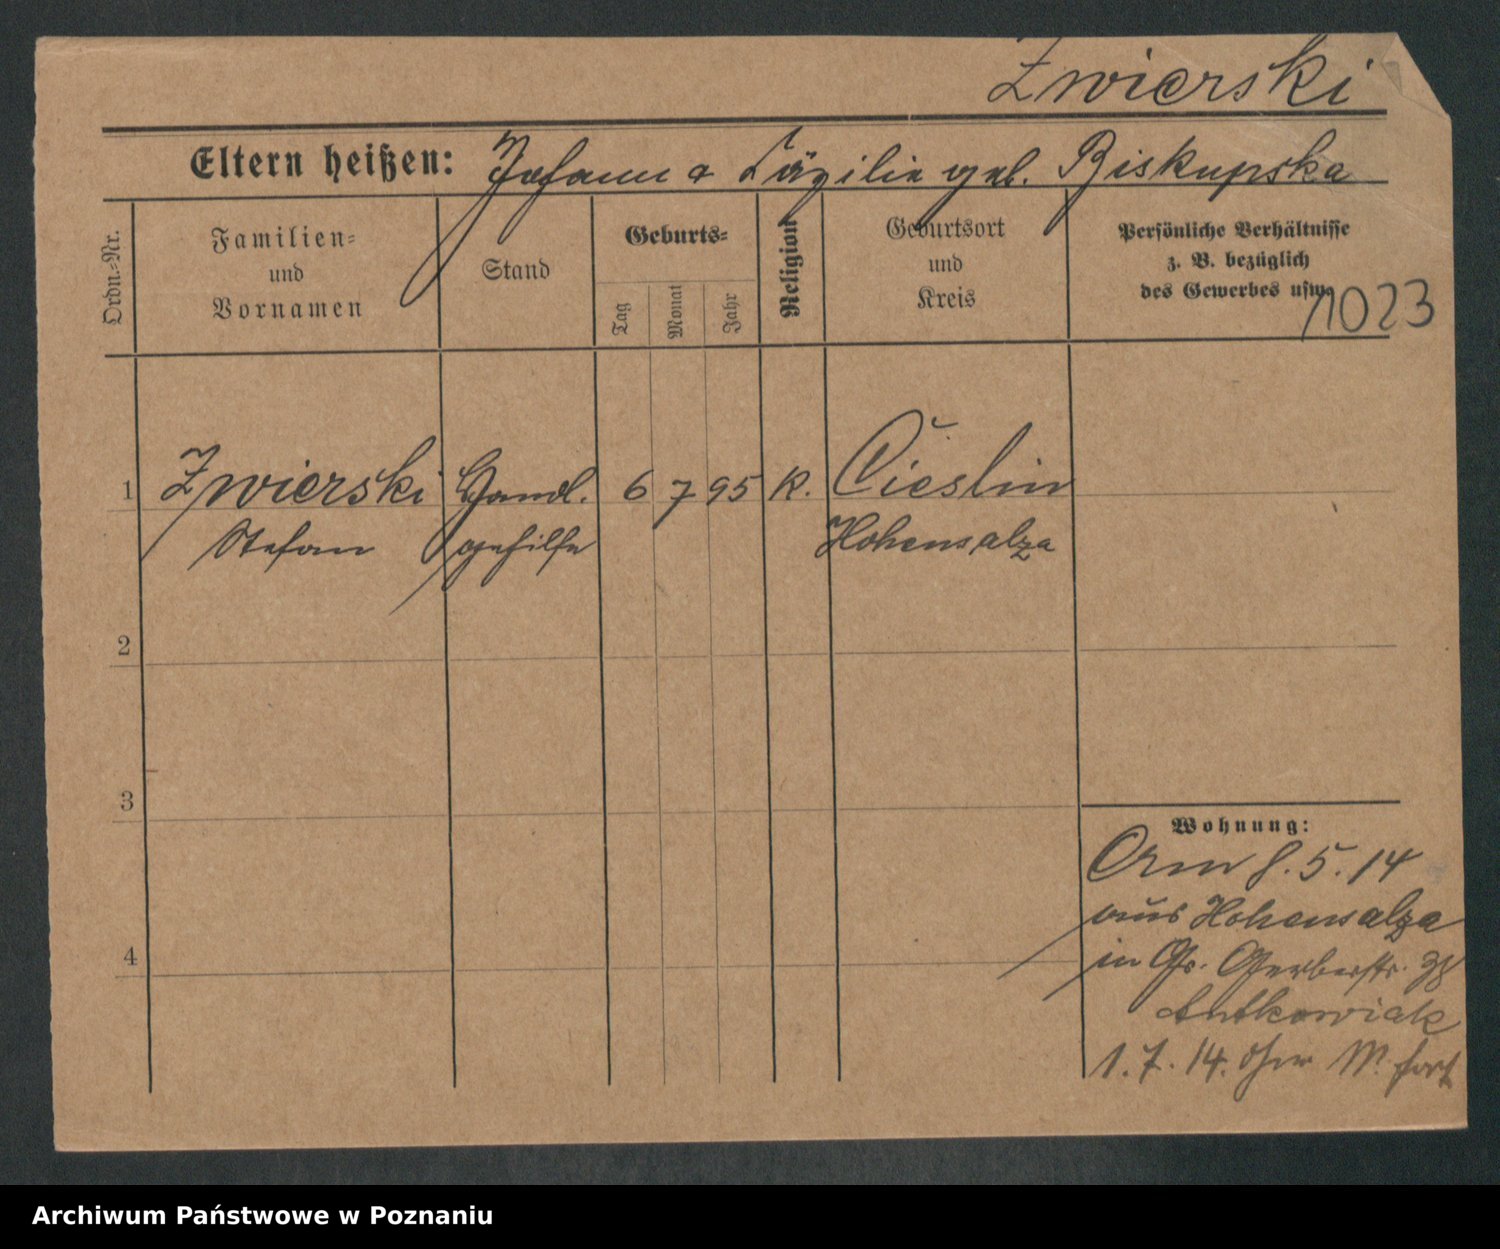 Zwierski
Eltern heißen: Johann & Cäzilie geb. Biskupska
Ordn.-Nr.
Familien-
und
Vornamen
Stand
Geburts-
Tag
Monat
Jahr
Religion
Geburtsort
und
Kreis
Persönliche Verhältnisse
z. B. bezüglich
des Gewerbes usw.
1023
1 Zwierski Handl. 6 7 95 K. Cieslin
Stefan gehilfe Hohensalza
2
3
4
Wohnung:
Anm 8. 5. 14
aus Hohensalza
in Gr. Gerberstr. 38
Antkowiak
1. 7. 14. fort
Archiwum Państwowe w Poznaniu